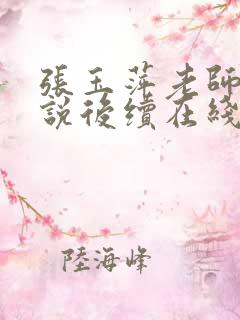 張玉萍老師
說後續在綫
陸海峰